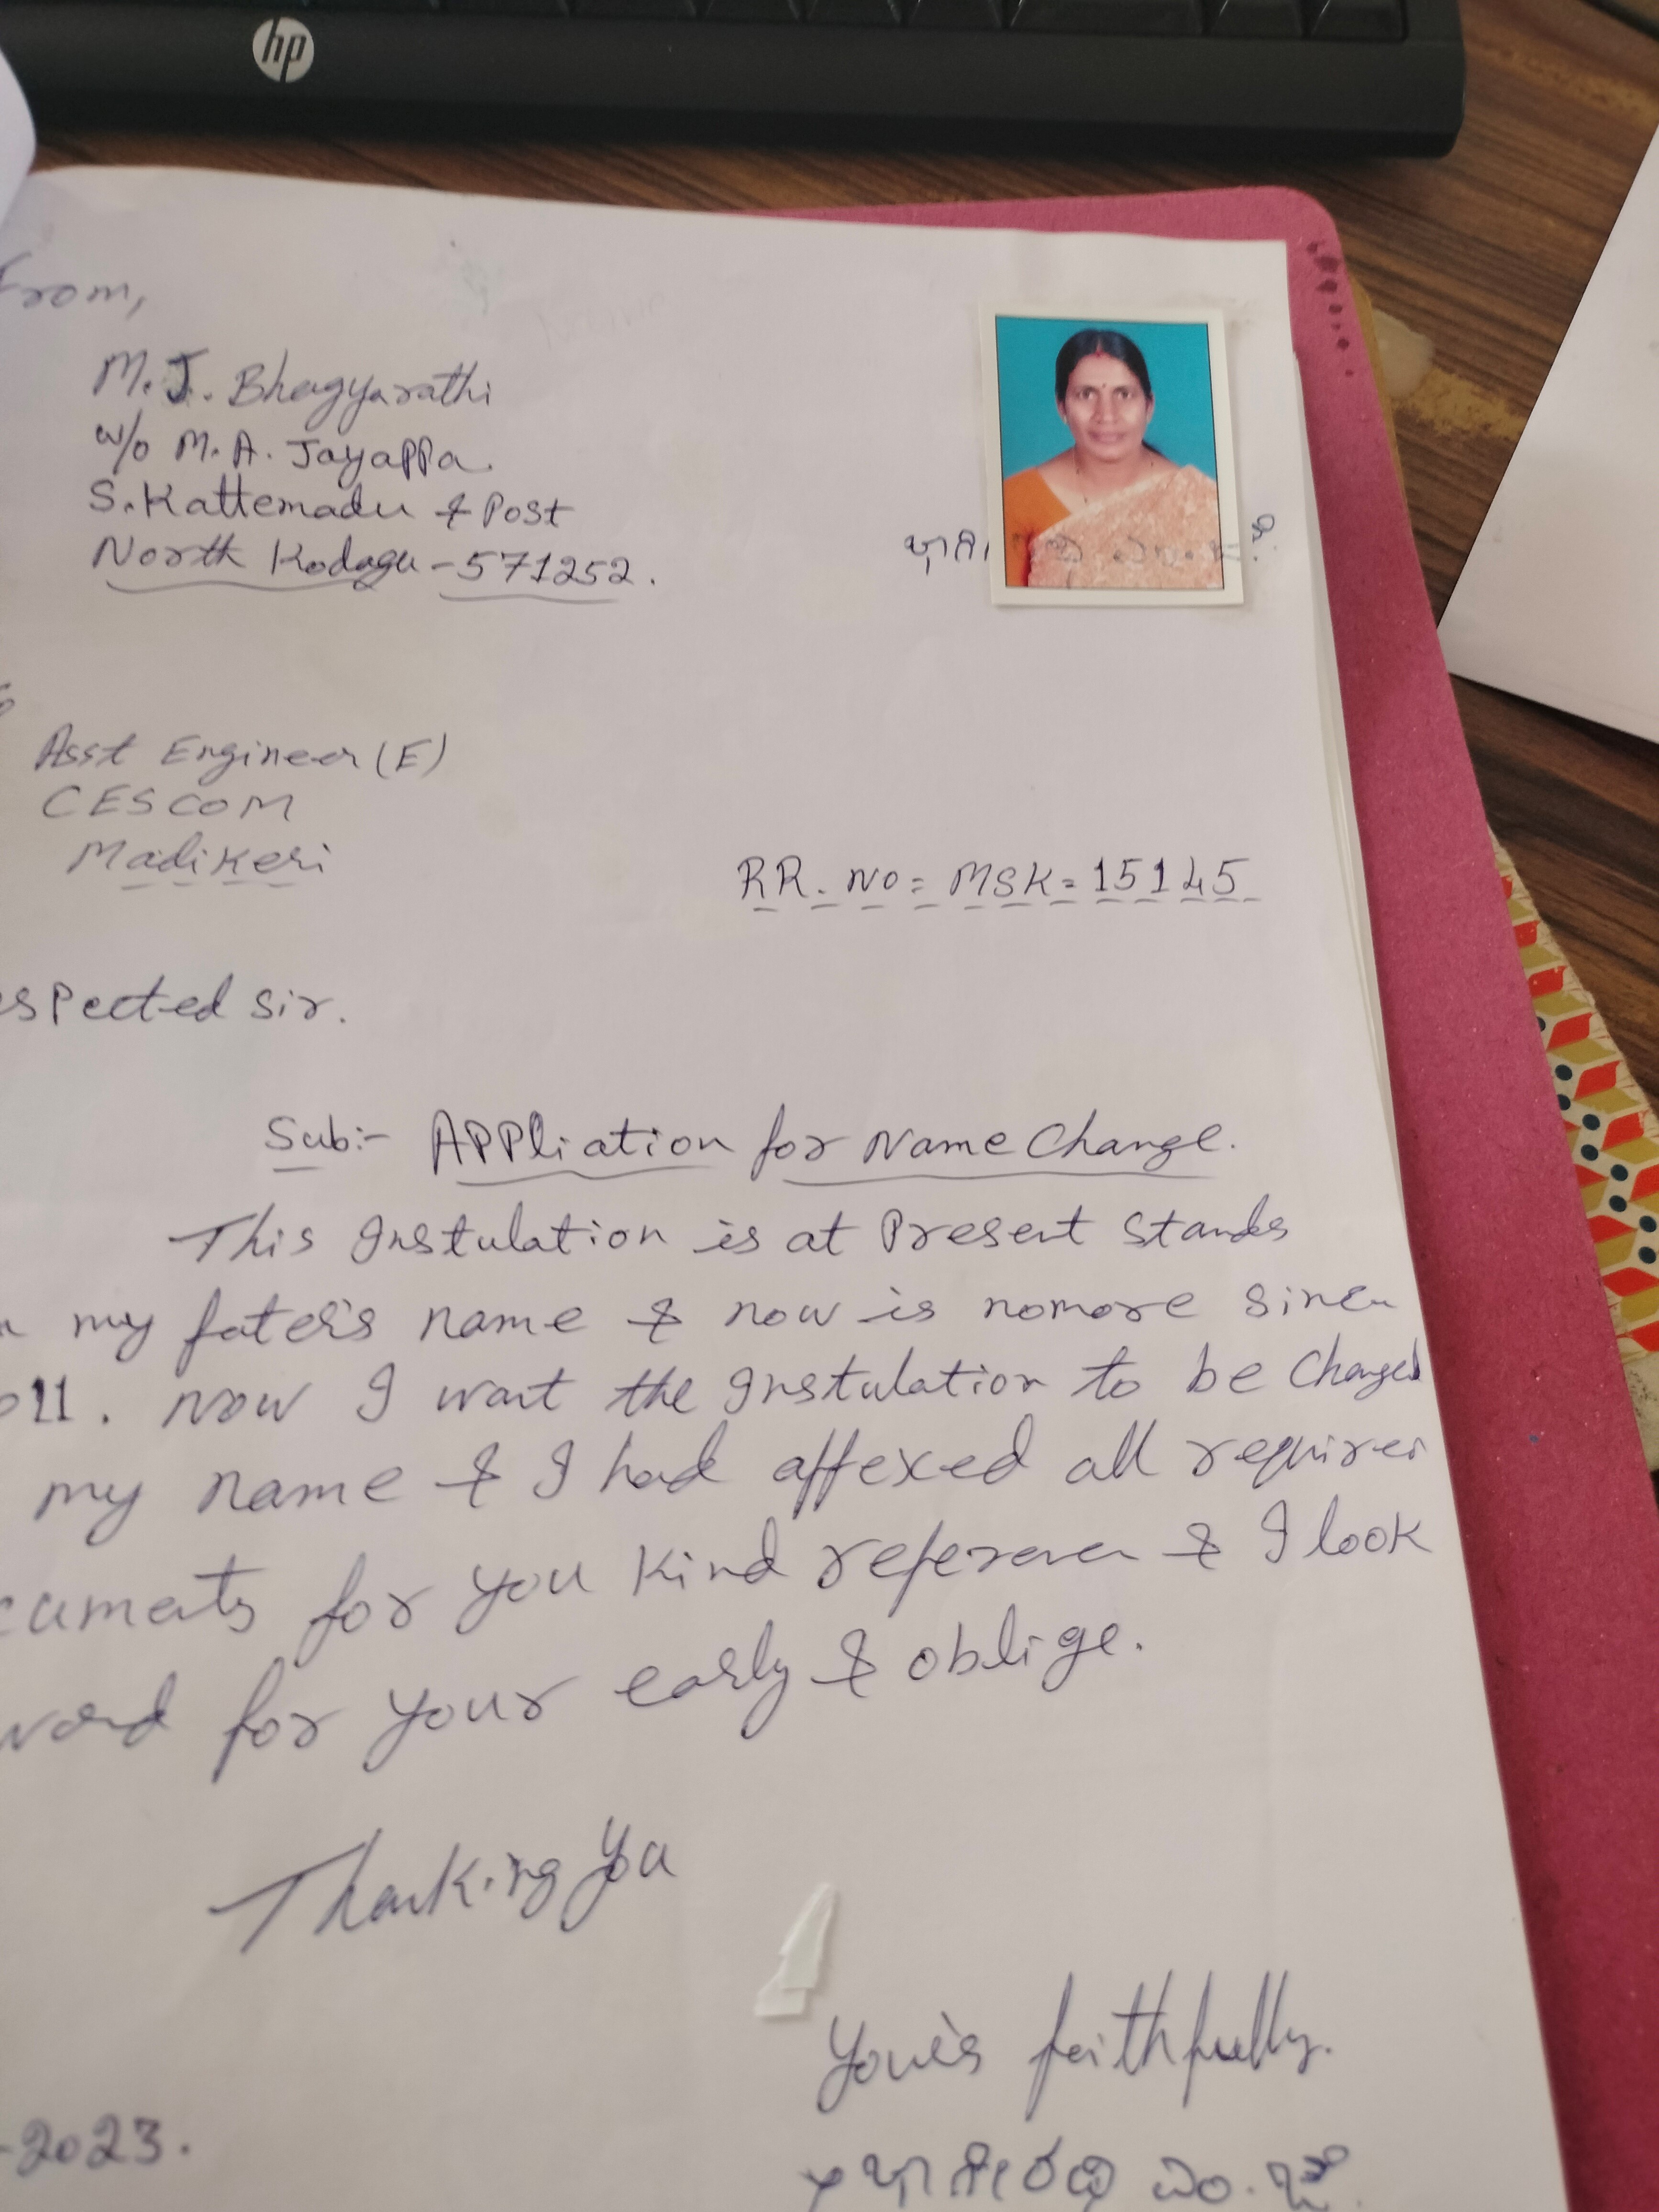 hp
From,
M.J. Bhagyarathi
w/o M.A. Jayappa.
S.Kattemadu & Post
North Kodagu-571252.
Asst Engineer (E)
CESCOM
Madikeri
RR. NO = MSK = 15145
espected sir.
Sub:- APPliation for Name Change.
This Instulation is at Present stands
my fater's name & now is nomore since
011. Now I want the Instulation to be Changed
my name & I had affexed all requires
cuments for you kind referenen & I look
ward for your early & oblige.
Thanking You
Your's faithfully.
-2023.
ಭಾಗೀರಥಿ ಎಂ.ಜೆ